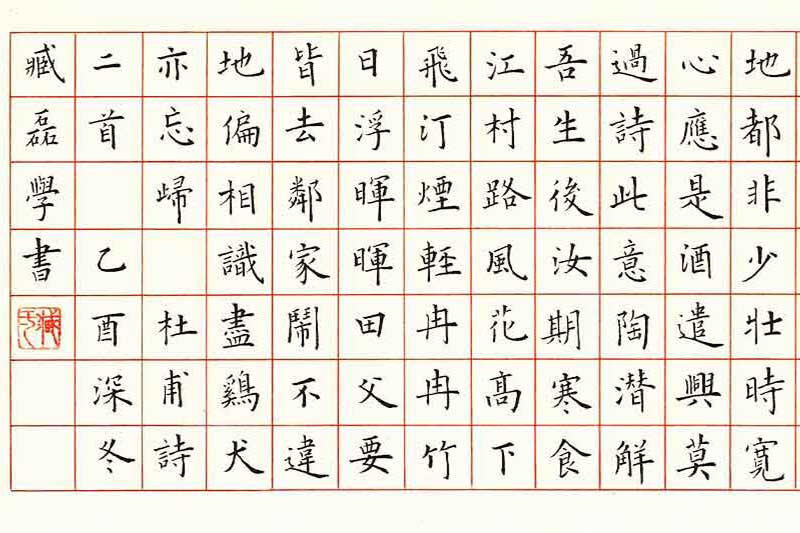 地都非少壯時寬
心應是酒遣興莫
過詩此意陶潛解
吾生後汝期寒食
江村路風花高下
飛汀煙輕冉冉竹
日浮暉暉田父要
皆去鄰家鬧不違
地偏相識盡鷄犬
亦忘歸 杜甫詩
二首 乙酉深冬
臧磊學書